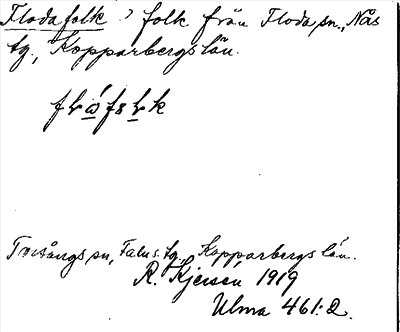 Floda folk. ) folk från Floda sn., Nås
tg., Kopparbergs län.
Torsångs sn, Falu s. tg., Kopparbergs län.
R. Kjersén, 1919
Ulma 461:2.